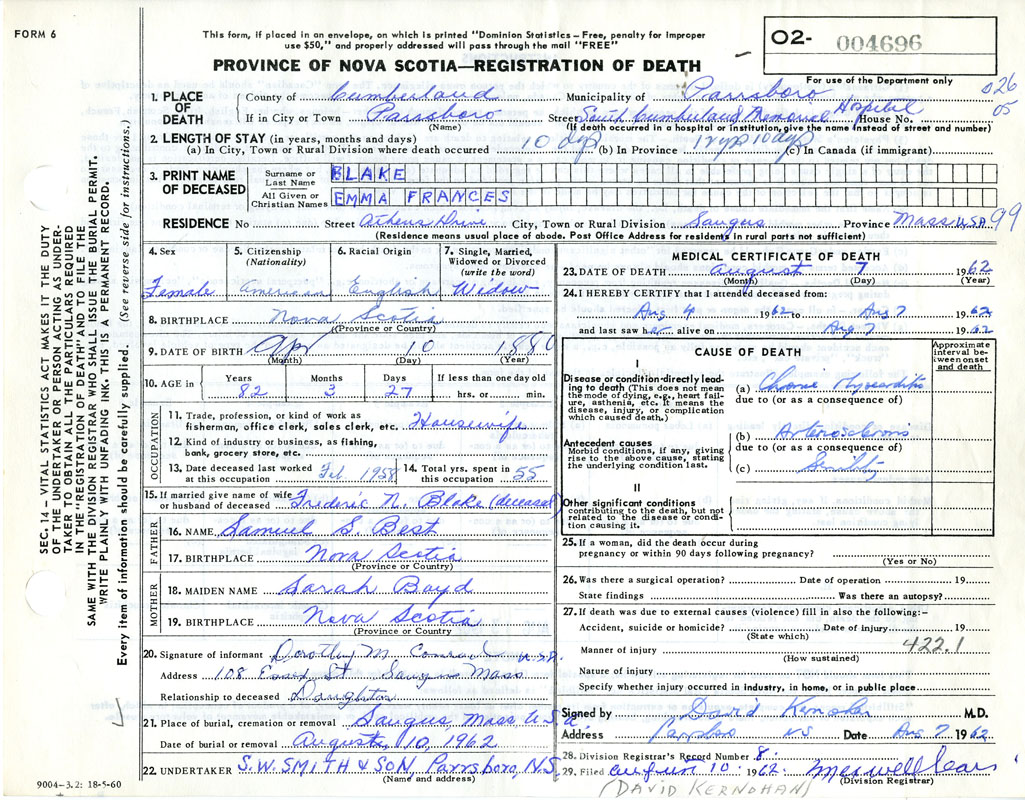 FORM 6
This form, if placed in an envelope, on which is printed "Dominion Statistics – Free, penalty for improper
use $50," and properly addressed will pass through the mail "FREE"
PROVINCE OF NOVA SCOTIA—REGISTRATION OF DEATH
02- 004696
For use of the Department only
026
05
1. PLACE OF DEATH
County of Cumberland Municipality of Parrsboro
If in City or Town Parrsboro Street South Cumberland Memorial Hospital House No.
(Name) (If death occurred in a hospital or institution, give the name instead of street and number)
2. LENGTH OF STAY (in years, months and days)
(a) In City, Town or Rural Division where death occurred 10 dys (b) In Province 10 dys (c) In Canada (if immigrant)
3. PRINT NAME OF DECEASED
Surname or Last Name BLAKE
All Given or Christian Names EMMA FRANCES
RESIDENCE No Street Athens Drive City, Town or Rural Division Saugus Province Mass USA 99
(Residence means usual place of abode. Post Office Address for residents in rural parts not sufficient)
4. Sex
Female
5. Citizenship (Nationality)
American
6. Racial Origin
English
7. Single, Married, Widowed or Divorced (write the word)
Widow
8. BIRTHPLACE Nova Scotia
(Province or Country)
9. DATE OF BIRTH Apr 10 1880
(Month) (Day) (Year)
10. AGE in Years 82 Months 3 Days 27 If less than one day old hrs. or min.
OCCUPATION
11. Trade, profession, or kind of work as
fisherman, office clerk, sales clerk, etc. Housewife
12. Kind of industry or business, as fishing,
bank, grocery store, etc.
13. Date deceased last worked
at this occupation Feb. 1958
14. Total yrs. spent in
this occupation 55
15. If married give name of wife
or husband of deceased Frederic N. Blake (deceased)
FATHER
16. NAME Samuel S. Best
17. BIRTHPLACE Nova Scotia
(Province or Country)
MOTHER
18. MAIDEN NAME Sarah Boyd
19. BIRTHPLACE Nova Scotia
(Province or Country)
20. Signature of informant Dorothy M Conrad U.S.A.
Address 108 Essex St Saugus Mass
Relationship to deceased Daughter
21. Place of burial, cremation or removal Saugus Mass U.S.A.
Date of burial or removal August, 10, 1962
22. UNDERTAKER S.W. SMITH & SON, Parrsboro, N.S.
(Name and address)
9004-3.2: 18-5-60
MEDICAL CERTIFICATE OF DEATH
23. DATE OF DEATH August 7 1962
(Month) (Day) (Year)
24. I HEREBY CERTIFY that I attended deceased from:
Aug 4 1962 to Aug 7 1962
and last saw her alive on Aug 7 1962
CAUSE OF DEATH
Approximate interval between onset and death
I
Disease or condition directly leading to death (This does not mean the mode of dying, e.g., heart failure, asthenia, etc. It means the disease, injury, or complication which caused death.)
(a) Chronic Myocarditis
due to (or as a consequence of)
Antecedent causes
Morbid conditions, if any, giving rise to the above cause, stating the underlying condition last.
(b) Arteriosclerosis
due to (or as a consequence of)
(c) Senility
II
Other significant conditions
contributing to the death, but not related to the disease or condition causing it.
25. If a woman, did the death occur during
pregnancy or within 90 days following pregnancy?
(Yes or No)
26. Was there a surgical operation? Date of operation 19
State findings Was there an autopsy?
27. If death was due to external causes (violence) fill in also the following:–
Accident, suicide or homicide? Date of injury 19
(State which)
Manner of injury 422.1
(How sustained)
Nature of injury
Specify whether injury occurred in industry, in home, or in public place
Signed by David Kernohan M.D.
Address Parrsboro NS Date Aug 7 1962
28. Division Registrar's Record Number 8.
29. Filed August 10 1962 Maxwell
(Division Registrar)
(DAVID KERNOHAN)
SEC. 14 – VITAL STATISTICS ACT MAKES IT THE DUTY
OF THE UNDERTAKER OR PERSON ACTING AS UNDERTAKER
TO OBTAIN ALL THE PARTICULARS REQUIRED
IN THE "REGISTRATION OF DEATH" AND TO FILE THE
SAME WITH THE DIVISION REGISTRAR WHO SHALL ISSUE THE BURIAL PERMIT.
WRITE PLAINLY WITH UNFADING INK. THIS IS A PERMANENT RECORD.
Every item of information should be carefully supplied. (See reverse side for instructions.)